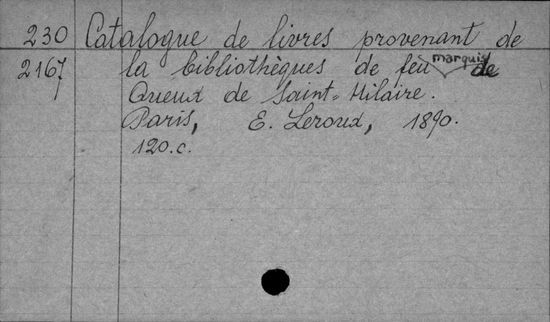 230 Catalogue de livres provenant de
2167 la bibliothèques de feu marquis de
Queux de Saint-Hilaire.
Paris, E. Leroux, 1890.
120.c.